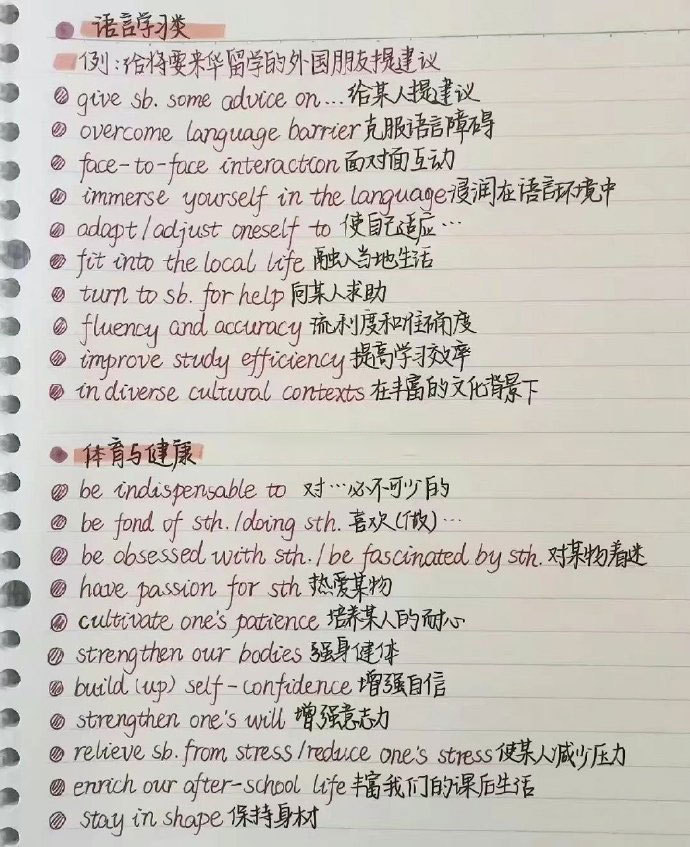 语言学习类
例:给将要来华留学的外国朋友提建议
give sb. some advice on...给某人提建议
overcome language barrier克服语言障碍
face-to-face interaction面对面互动
immerse yourself in the language浸润在语言环境中
adapt/adjust oneself to 使自己适应…
fit into the local life 融入当地生活
turn to sb. for help向某人求助
fluency and accuracy 流利度和准确度
improve study efficiency提高学习效率
in diverse cultural contexts在丰富的文化背景下
体育与健康
be indispensable to 对…必不可少的
be fond of sth./doing sth. 喜欢(做)…
be obsessed with sth./be fascinated by sth. 对某物着迷
have passion for sth 热爱某物
cultivate one's patience 培养某人的耐心
strengthen our bodies 强身健体
build(up) self-confidence 增强自信
strengthen one's will 增强意志力
relieve sb. from stress/reduce one's stress使某人减少压力
enrich our after-school life丰富我们的课后生活
stay in shape 保持身材